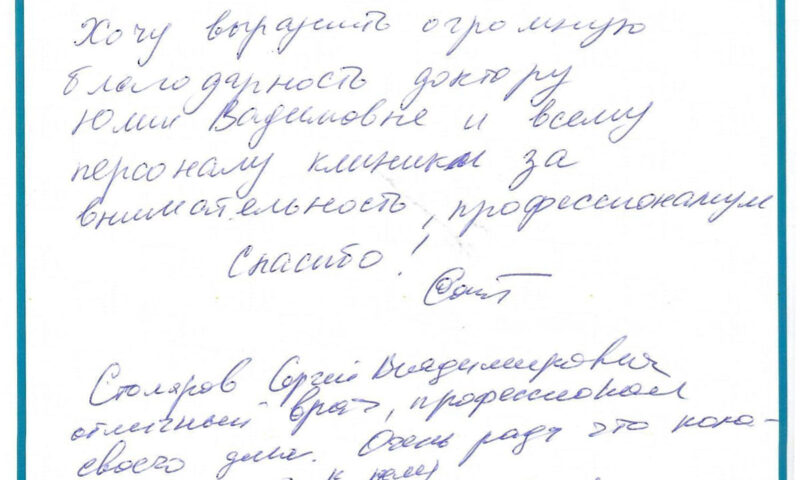 Хочу выразить огромную
благодарность доктору
Юлии Вадимовне и всему
персоналу клиники за
внимательность, профессионализм
Спасибо!
Столяров Сергей Владимирович
отличный врач, профессионал
своего дела. Очень рада что попа-
к